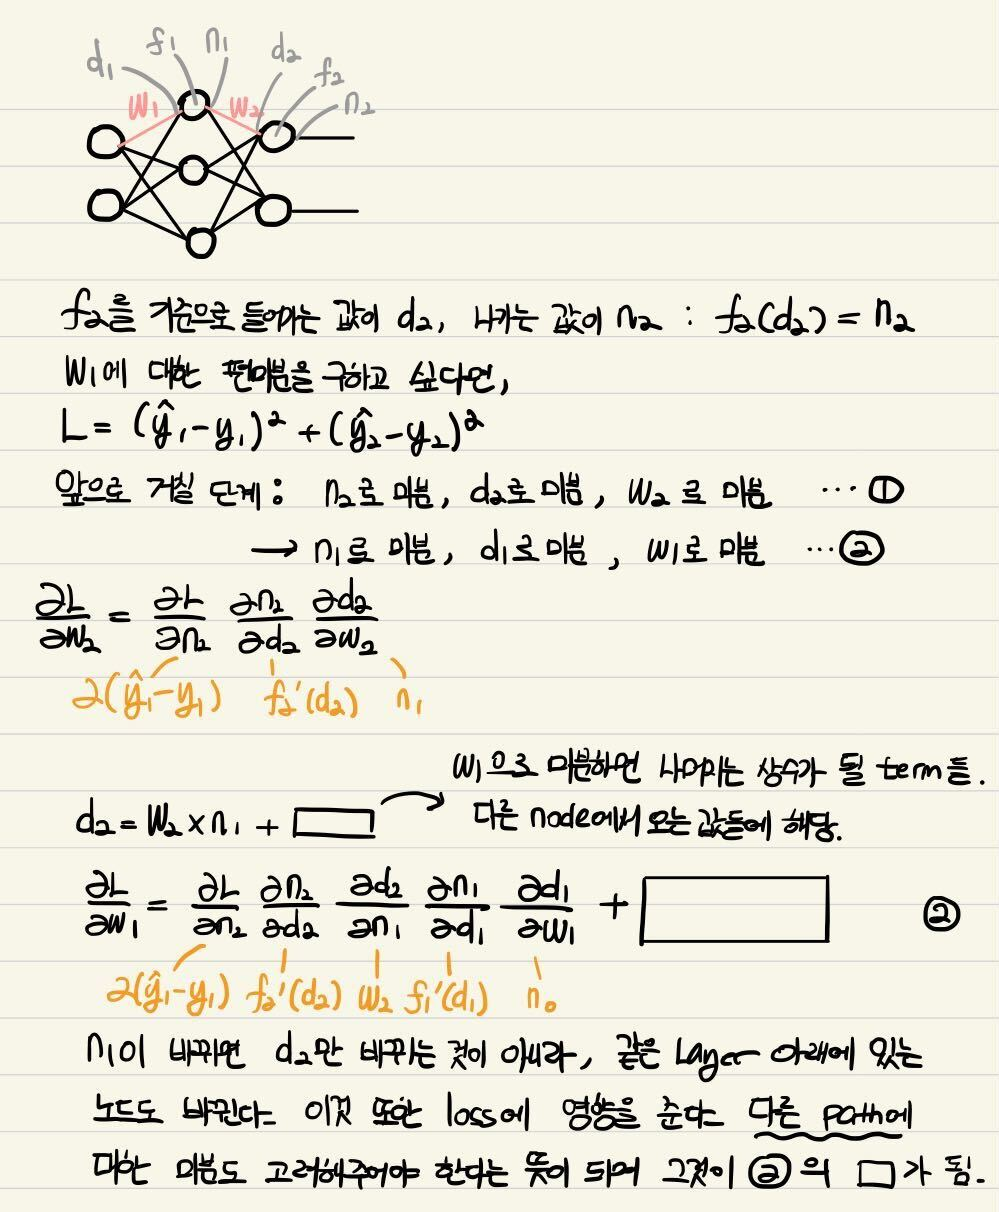 d₁ f₁ n₁ d₂ f₂ n₂
W₁ W₂
f₂를 기준으로 들어가는 값이 d₂, 나가는 값이 n₂ : f₂(d₂) = n₂
W₁에 대한 편미분을 구하고 싶다면,
L = (ŷ₁-y₁)² + (ŷ₂-y₂)²
앞으로 거칠 단계 : n₂로 미분, d₂로 미분, w₂로 미분 ... ①
→ n₁로 미분, d₁로 미분, w₁로 미분 ... ②
∂L/∂W₂ = ∂L/∂n₂ ∂n₂/∂d₂ ∂d₂/∂w₂
2(ŷ₁-y₁) f₂'(d₂) n₁
W₁으로 미분하면 나머지는 상수가 될 term들.
d₂ = W₂ × n₁ + □ → 다른 node에서 오는 값들에 해당.
∂L/∂w₁ = ∂L/∂n₂ ∂n₂/∂d₂ ∂d₂/∂n₁ ∂n₁/∂d₁ ∂d₁/∂w₁ + □ ②
2(ŷ₁-y₁) f₂'(d₂) w₂ f₁'(d₁) n₀
n₁이 바뀌면 d₂만 바뀌는 것이 아니라, 같은 Layer 아래에 있는
노드도 바뀐다. 이것 또한 loss에 영향을 준다. 다른 path에
대한 미분도 고려해주어야 한다는 뜻이 되며 그것이 ②의 □가 됨.